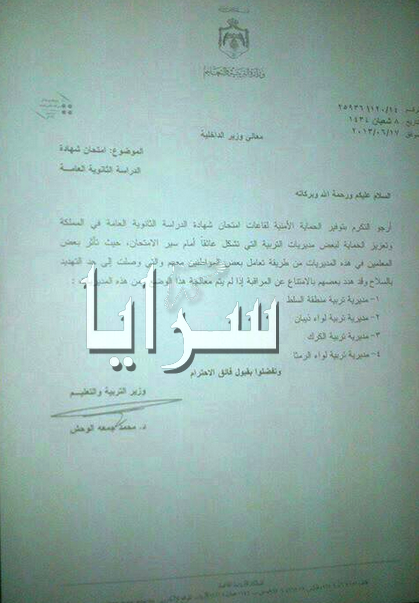 وزارة التربية والتعليم
٢٥٩٣٦/١٢٠/١٤
٨ شعبان ١٤٣٤
٢٠١٣/٠٦/١٧
معالي وزير الداخلية
الموضوع: امتحان شهادة
الدراسة الثانوية العامـة
السلام عليكم ورحمة الله وبركاته
أرجو التكرم بتوفير الحماية الأمنية لقاعات امتحان شهادة الدراسة الثانوية العامة في المملكة
وتعزيز الحماية لبعض مديريات التربية التي تشكل عائقاً أمام سير الامتحان، حيث تأثر بعض
المعلمين في هذه المديريات من طريقة تعامل بعض المواطنين معهم والتي وصلت إلى حد التهديد
بالسلاح وقد هدد بعضهم بالامتناع عن المراقبة إذا لم يتم معالجة هذا الوضع ومن هذه المديريات :
١ - مديرية تربية منطقة السلط
٢ - مديرية تربية لواء ذيبان
٣ - مديرية تربية الكرك
٤ - مديرية تربية لواء الرمثا
سرايا
وتفضلوا بقبول فائق الاحترام
وزير التربية والتعليــم
د. محمد جمعه الوحش